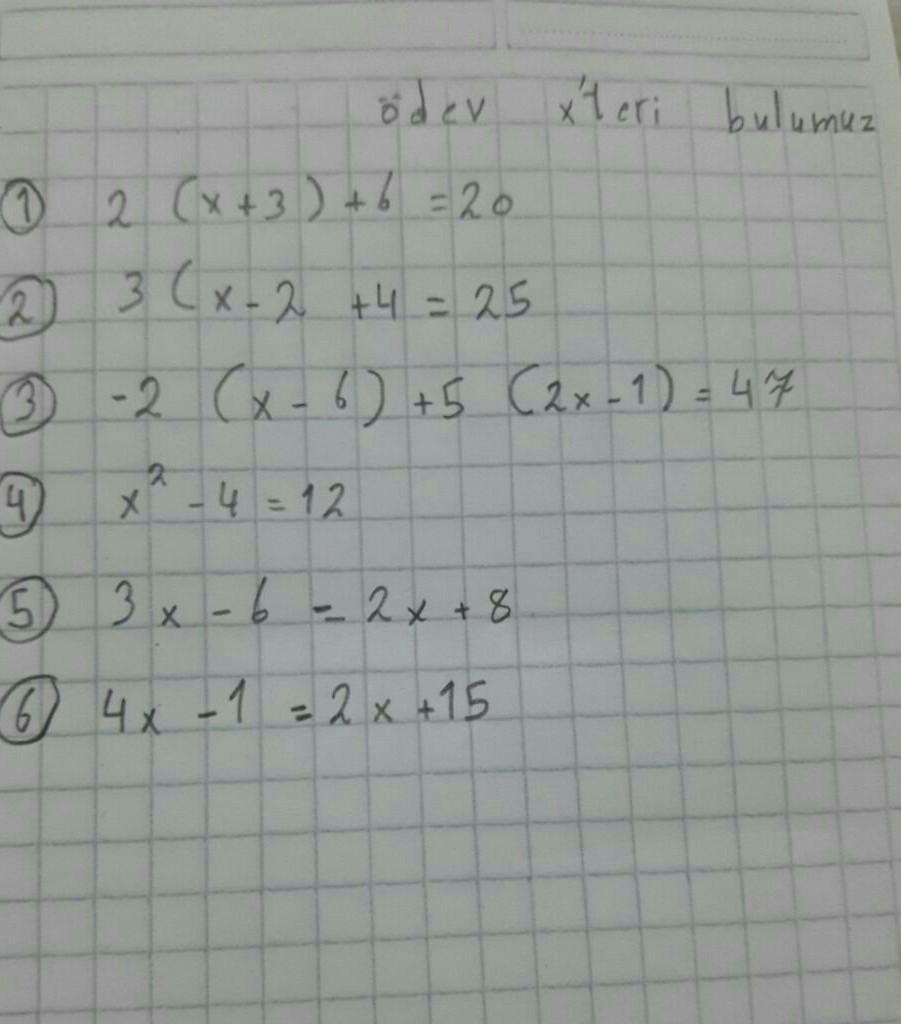 ödev x'leri bulumuz
① 2 (x+3) +6 =20
② 3 (x-2 +4 = 25
③ -2 (x-6) +5 (2x-1) = 47
④ x² -4 =12
⑤ 3x -6 = 2x +8
⑥ 4x -1 =2x +15